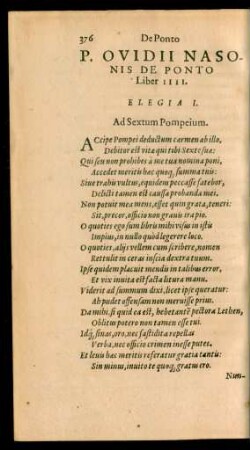 376 De Ponto
P. OVIDII NASO-
NIS DE PONTO
Liber IIII.
ELEGIA I.
Ad Sextum Pompeium.
ACcipe Pompei deductum carmen ab illo,
Debitor est vitæ qui tibi Sexte suæ:
Qui seu non prohibes à me tua nomina poni,
Accedet meritis hæc quoq; summa tuis:
Siue trahis vultus, equidem peccasse fatebor,
Delicti tamen est caussa probanda mei.
Non potuit mea mens, esset quin grata, teneri:
Sit, precor, officio non grauis ira pio.
O quoties ego sum libris mihi visus in istis
Impius, in nullo quòd legerere loco.
O quoties, alijs vellem cum scribere, nomen
Rettulit in ceras inscia dextra tuum.
Ipse quidem placuit mendis in talibus error,
Et vix inuita est facta litura manu.
Viderit ad summum dixi, licet ipse queratur:
Ah pudet offensam non meruisse prius.
Da mihi, si quid ea est, hebetantē pectora Lethen,
Oblitus potero non tamen esse tui.
Idq; sinas, oro, nec fastidita repellas
Verba, nec officio crimen inesse putes.
Et leuis hæc meritis referatur gratia tantis:
Sin minus, inuito te quoq; gratus ero.
Nun-